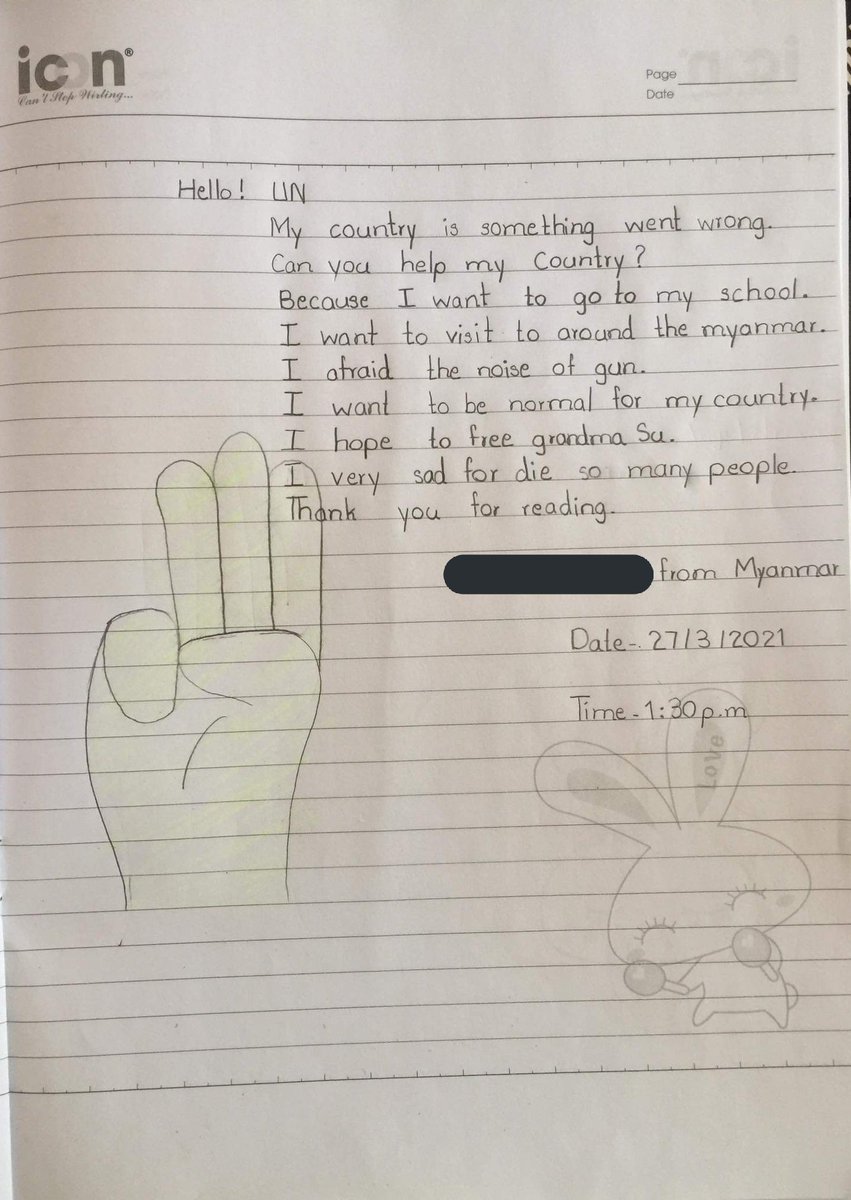 icon®
Can't Stop Writing...
Page
Date
Hello! UN
My country is something went wrong.
Can you help my Country?
Because I want to go to my school.
I want to visit to around the myanmar.
I afraid the noise of gun.
I want to be normal for my country.
I hope to free grandma Su.
I very sad for die so many people.
Thank you for reading.
from Myanmar
Date-. 27/3/2021
Time-1:30p.m
Love